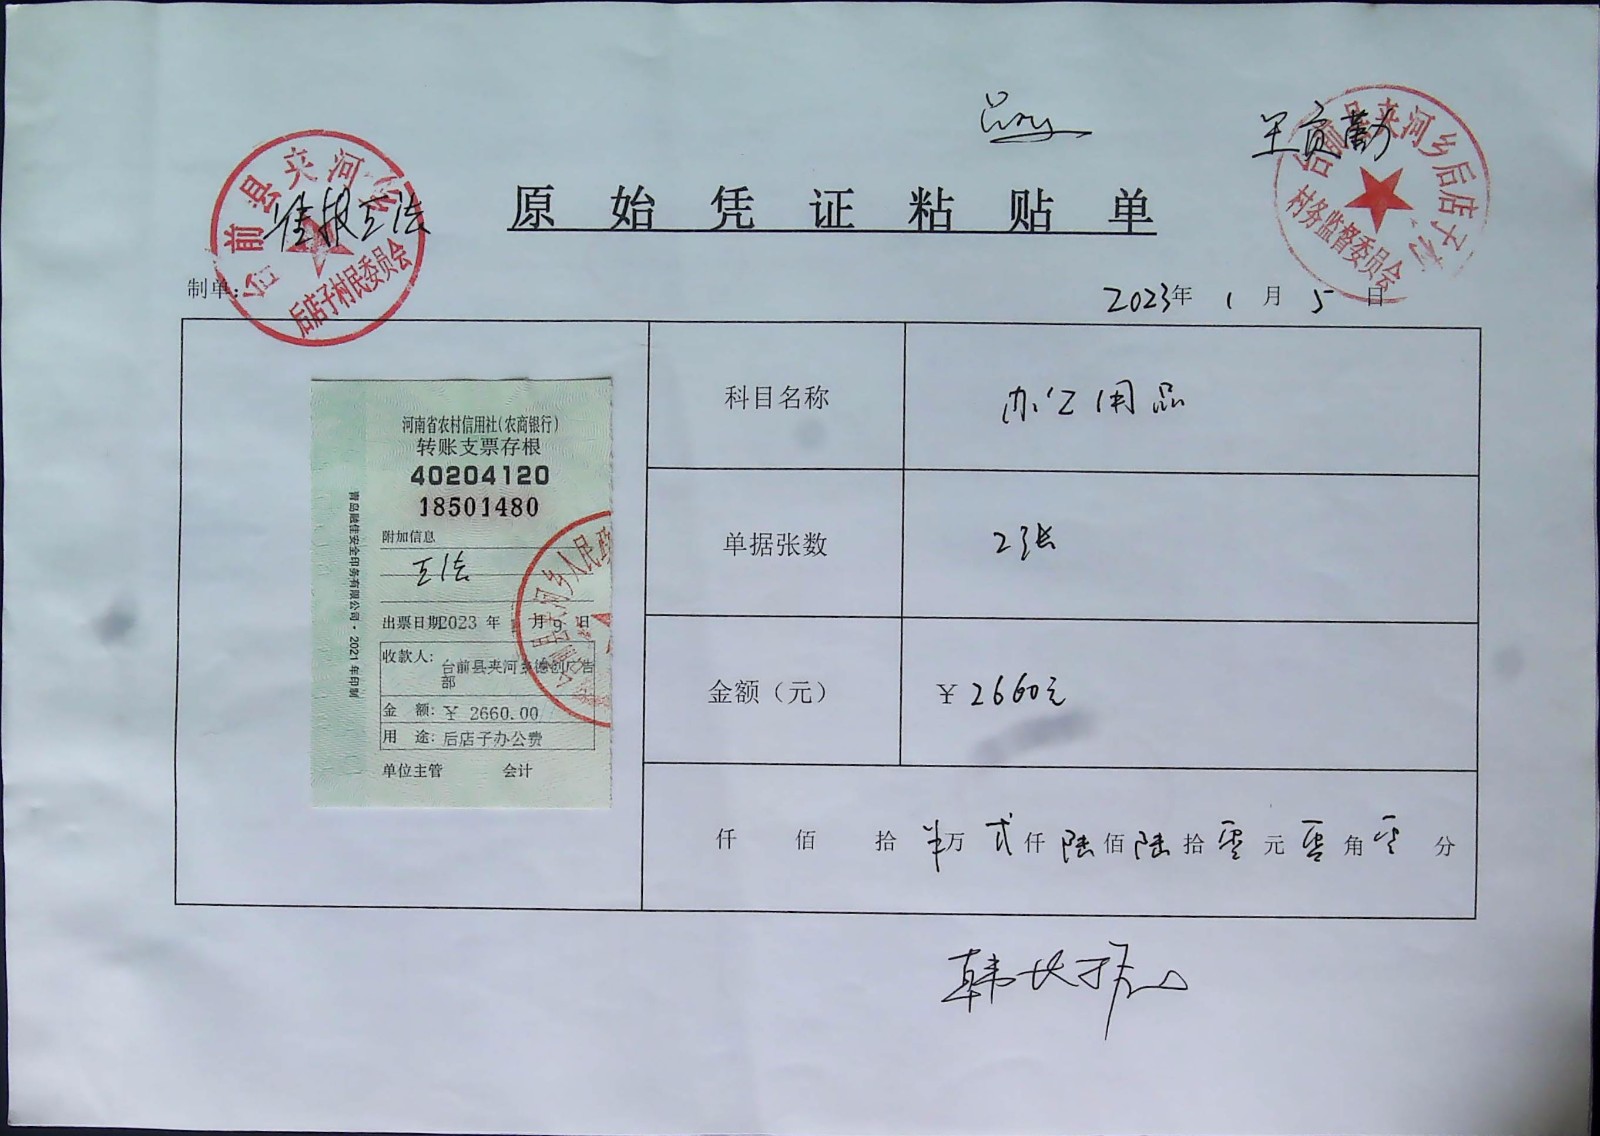 台前县夹河乡
后店子村民委员会
台前县夹河乡后店子村
村务监督委员会
原始凭证粘贴单
制单:
2023年 1 月 5 日
河南省农村信用社(农商银行)
转账支票存根
40204120
18501480
附加信息
出票日期2023 年 月 9 日
收款人:
台前县夹河乡德创广告
部
金 额: ¥ 2660.00
用 途: 后店子办公费
单位主管 会计
青岛融佳安全印务有限公司·2021 年印制
科目名称 办公用品
单据张数 2张
金额（元） ¥ 2660元
仟 佰 拾 半万 贰仟 陆佰 陆拾 零元 零角 零分